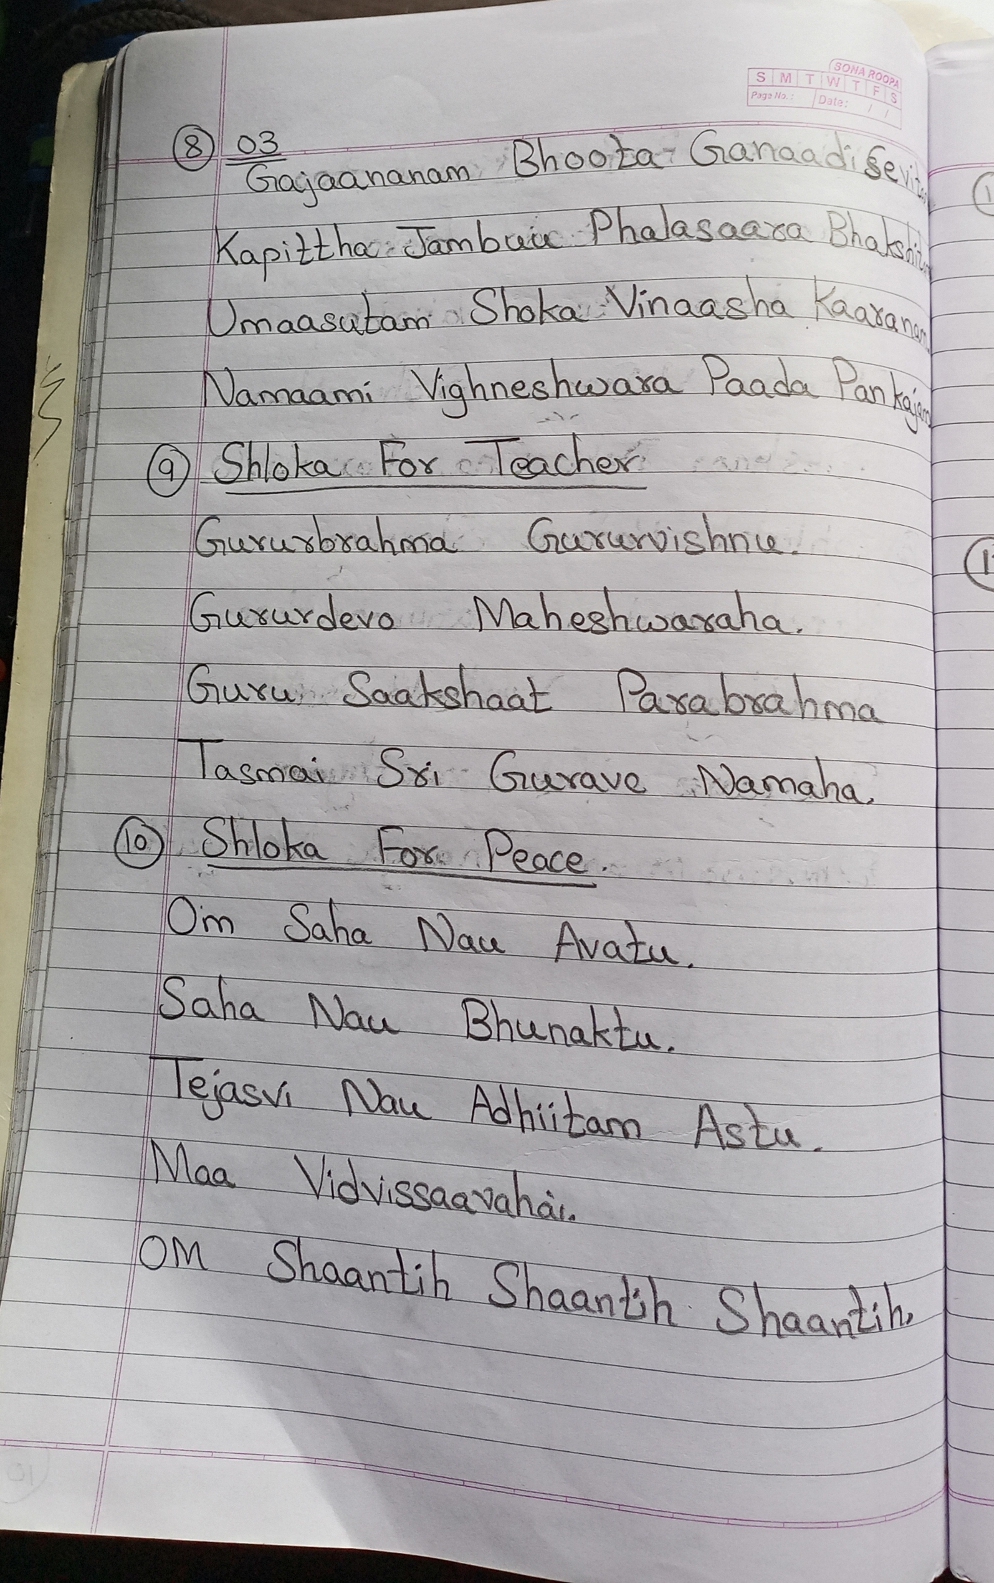 SONA ROOPA
S M T W T F S
Page No.: Date: / /
8 03
Gajaananam Bhoota-Ganaadi
Kapittha Jambuu Phalasaara
Umaasutam Shoka Vinaasha
Namaami Vighneshwara Paada
9 Shloka For Teacher
Gururbrahma Gururvishnu.
Gururdevo Maheshwaraha.
Guru Saakshaat Parabrahma
Tasmai Sri Gurave Namaha.
10 Shloka For Peace.
Om Saha Nau Avatu.
Saha Nau Bhunaktu.
Tejasvi Nau Adhiitam Astu.
Maa Vidvissaavahai.
OM Shaantih Shaantih Shaantih.